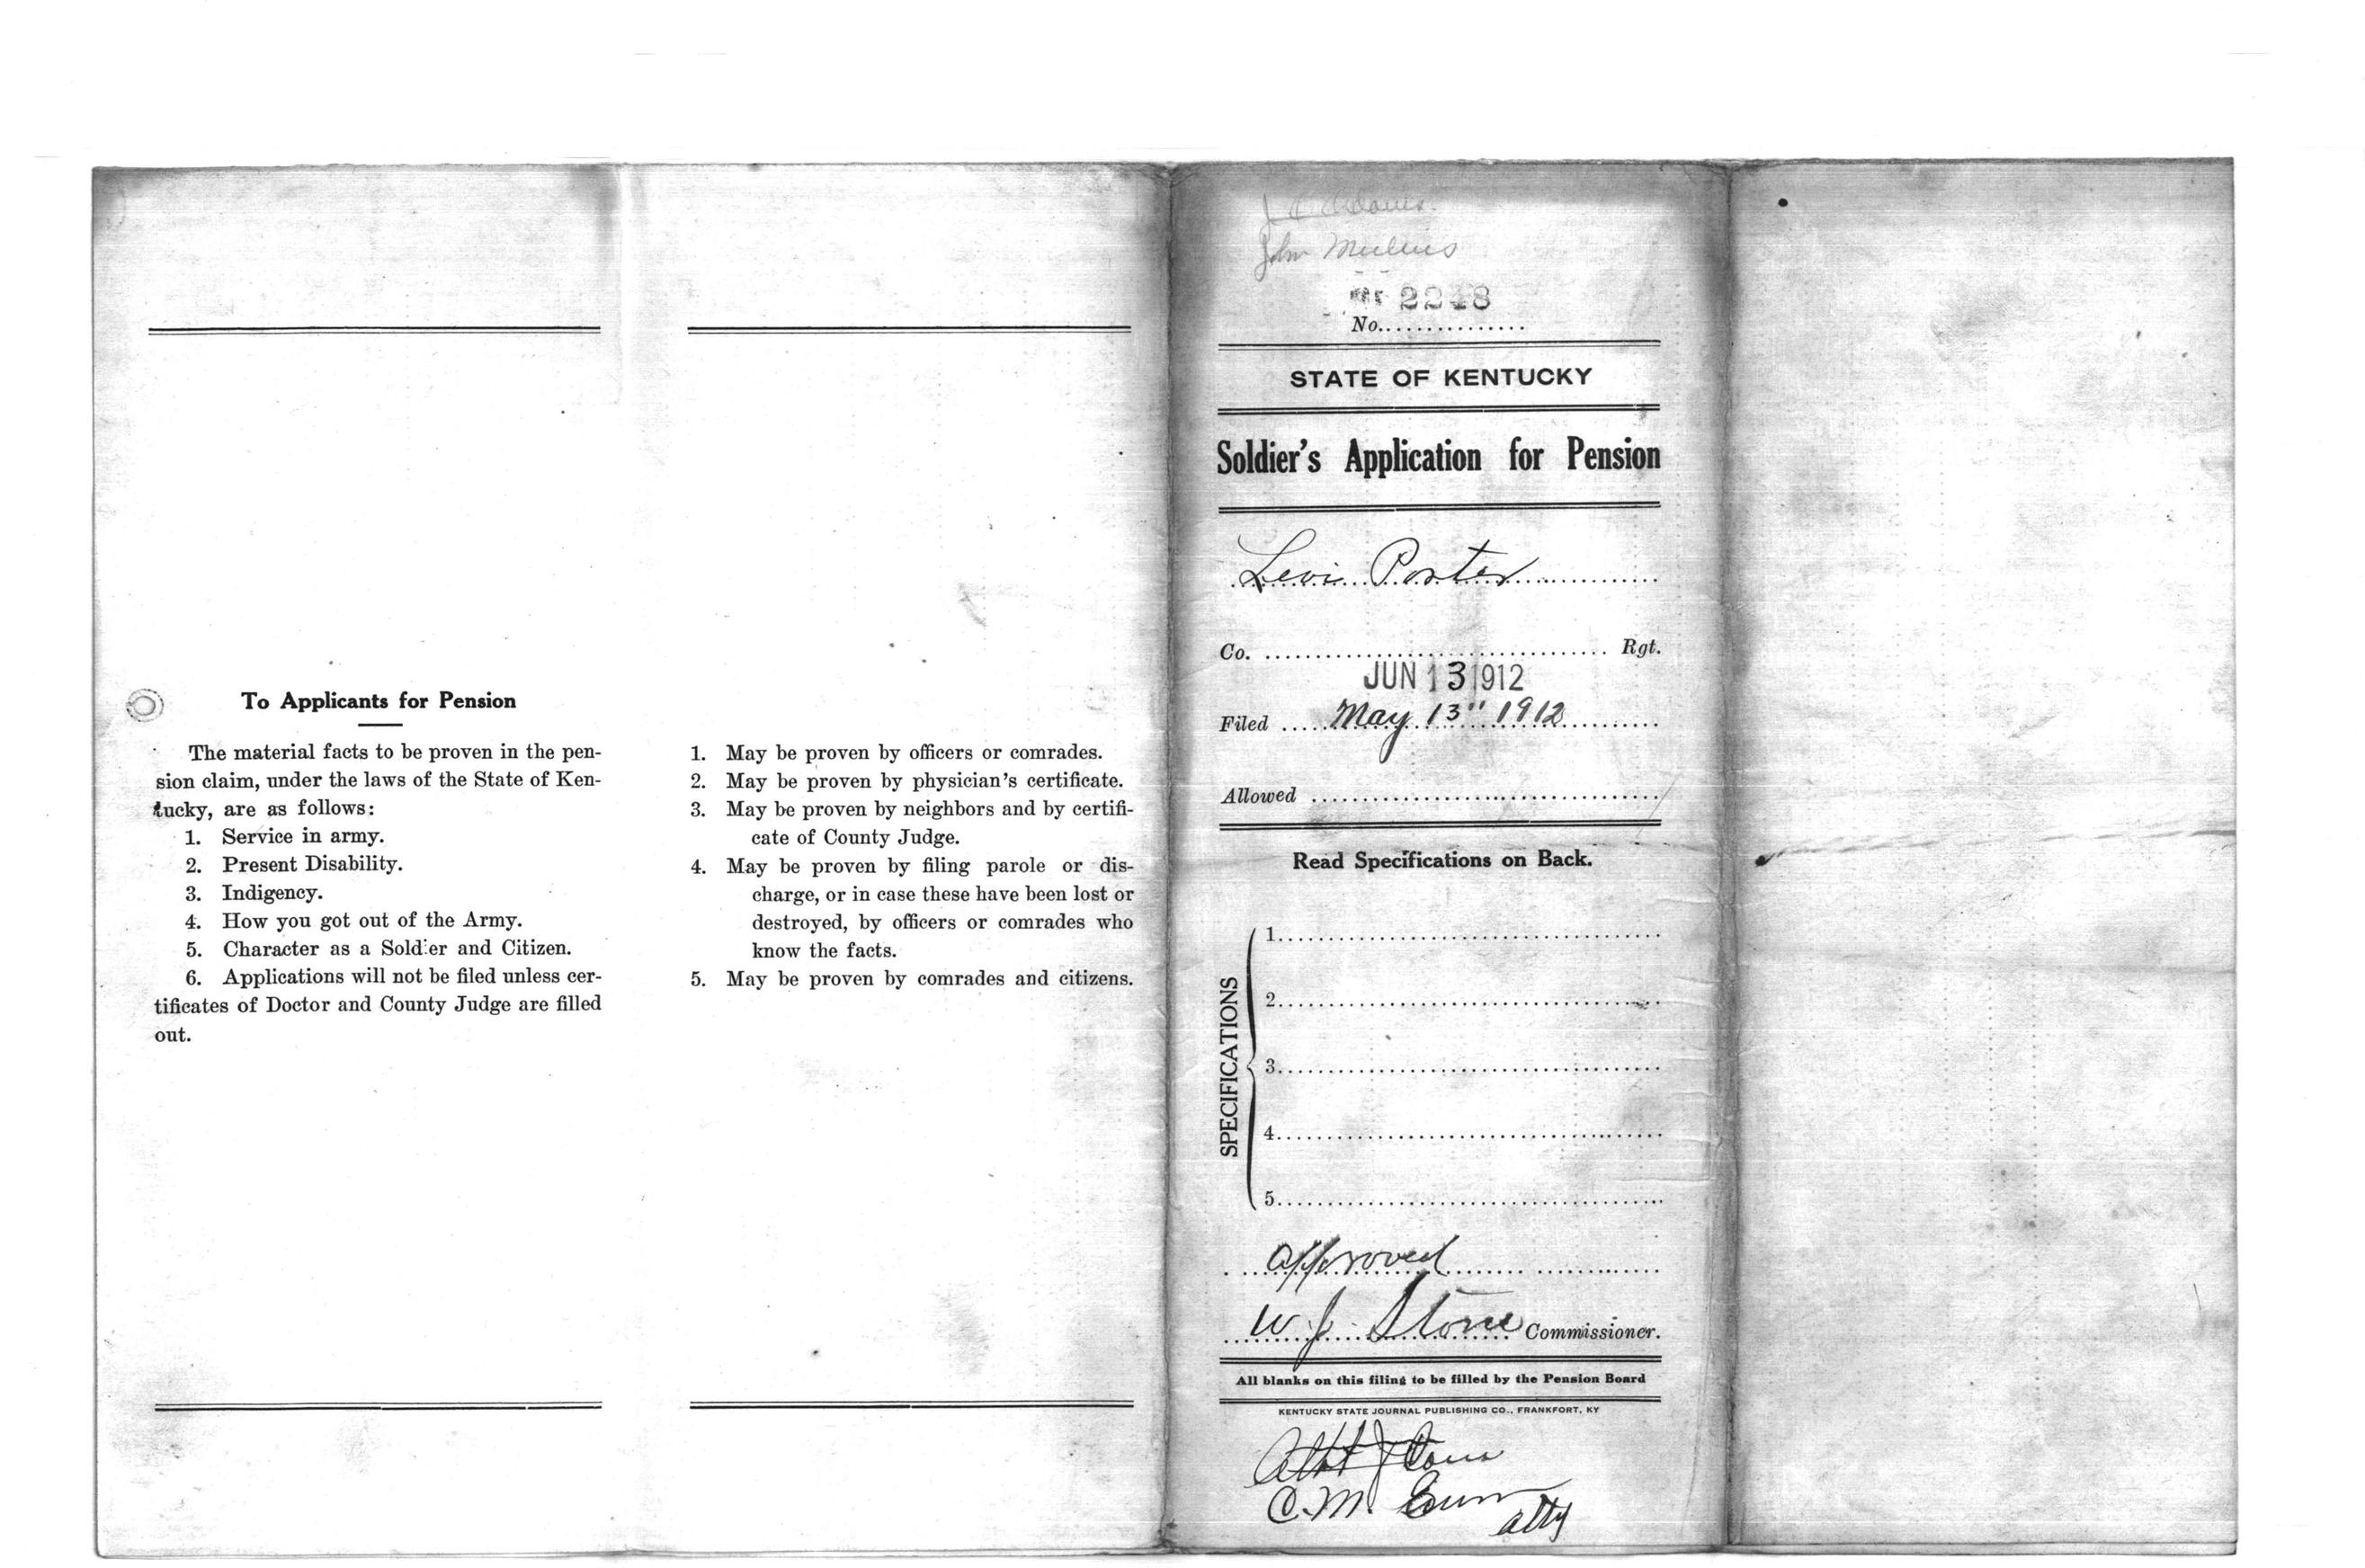 To Applicants for Pension
The material facts to be proven in the pen-
sion claim, under the laws of the State of Ken-
tucky, are as follows:
1. Service in army.
2. Present Disability.
3. Indigency.
4. How you got out of the Army.
5. Character as a Soldier and Citizen.
6. Applications will not be filed unless cer-
tificates of Doctor and County Judge are filled
out.
1. May be proven by officers or comrades.
2. May be proven by physician's certificate.
3. May be proven by neighbors and by certifi-
cate of County Judge.
4. May be proven by filing parole or dis-
charge, or in case these have been lost or
destroyed, by officers or comrades who
know the facts.
5. May be proven by comrades and citizens.
John Mullins
2248
No.
STATE OF KENTUCKY
Soldier's Application for Pension
Levi Porter
Co. Rgt.
JUN 13 1912
Filed May 13" 1912
Allowed
Read Specifications on Back.
SPECIFICATIONS
1.
2.
3.
4.
5.
approved
W. J. Stone Commissioner.
All blanks on this filing to be filled by the Pension Board
KENTUCKY STATE JOURNAL PUBLISHING CO., FRANKFORT, KY
C. M.
atty